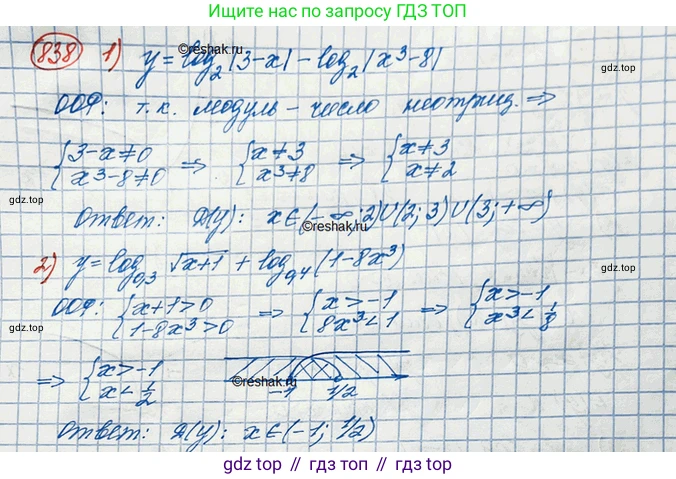 Ищите нас по запросу ГДЗ ТОП
838 1) y = log₂|3-x| - log₂|x³-8|
©reshak.ru
gdz.top
ООФ: т.к. модуль - число неотриц. ⇒
{3-x≠0 ⇒ {x≠3 ⇒ {x≠3
x³-8≠0 x³≠8 x≠2
Ответ: D(y): x∈(-∞;2)∪(2;3)∪(3;+∞)
©reshak.ru
2) y = log₀,₃ √x+1 + log₀,₄(1-8x³)
gdz.top
ООФ: {x+1>0 ⇒ {x>-1 ⇒ {x>-1
1-8x³>0 8x³<1 x³<1/8
gdz.top
⇒ {x>-1
x<1/2
©reshak.ru
-1 1/2
Ответ: D(y): x∈(-1; 1/2)
gdz.top
gdz.top // гдз топ // gdz.top // гдз топ // gdz top